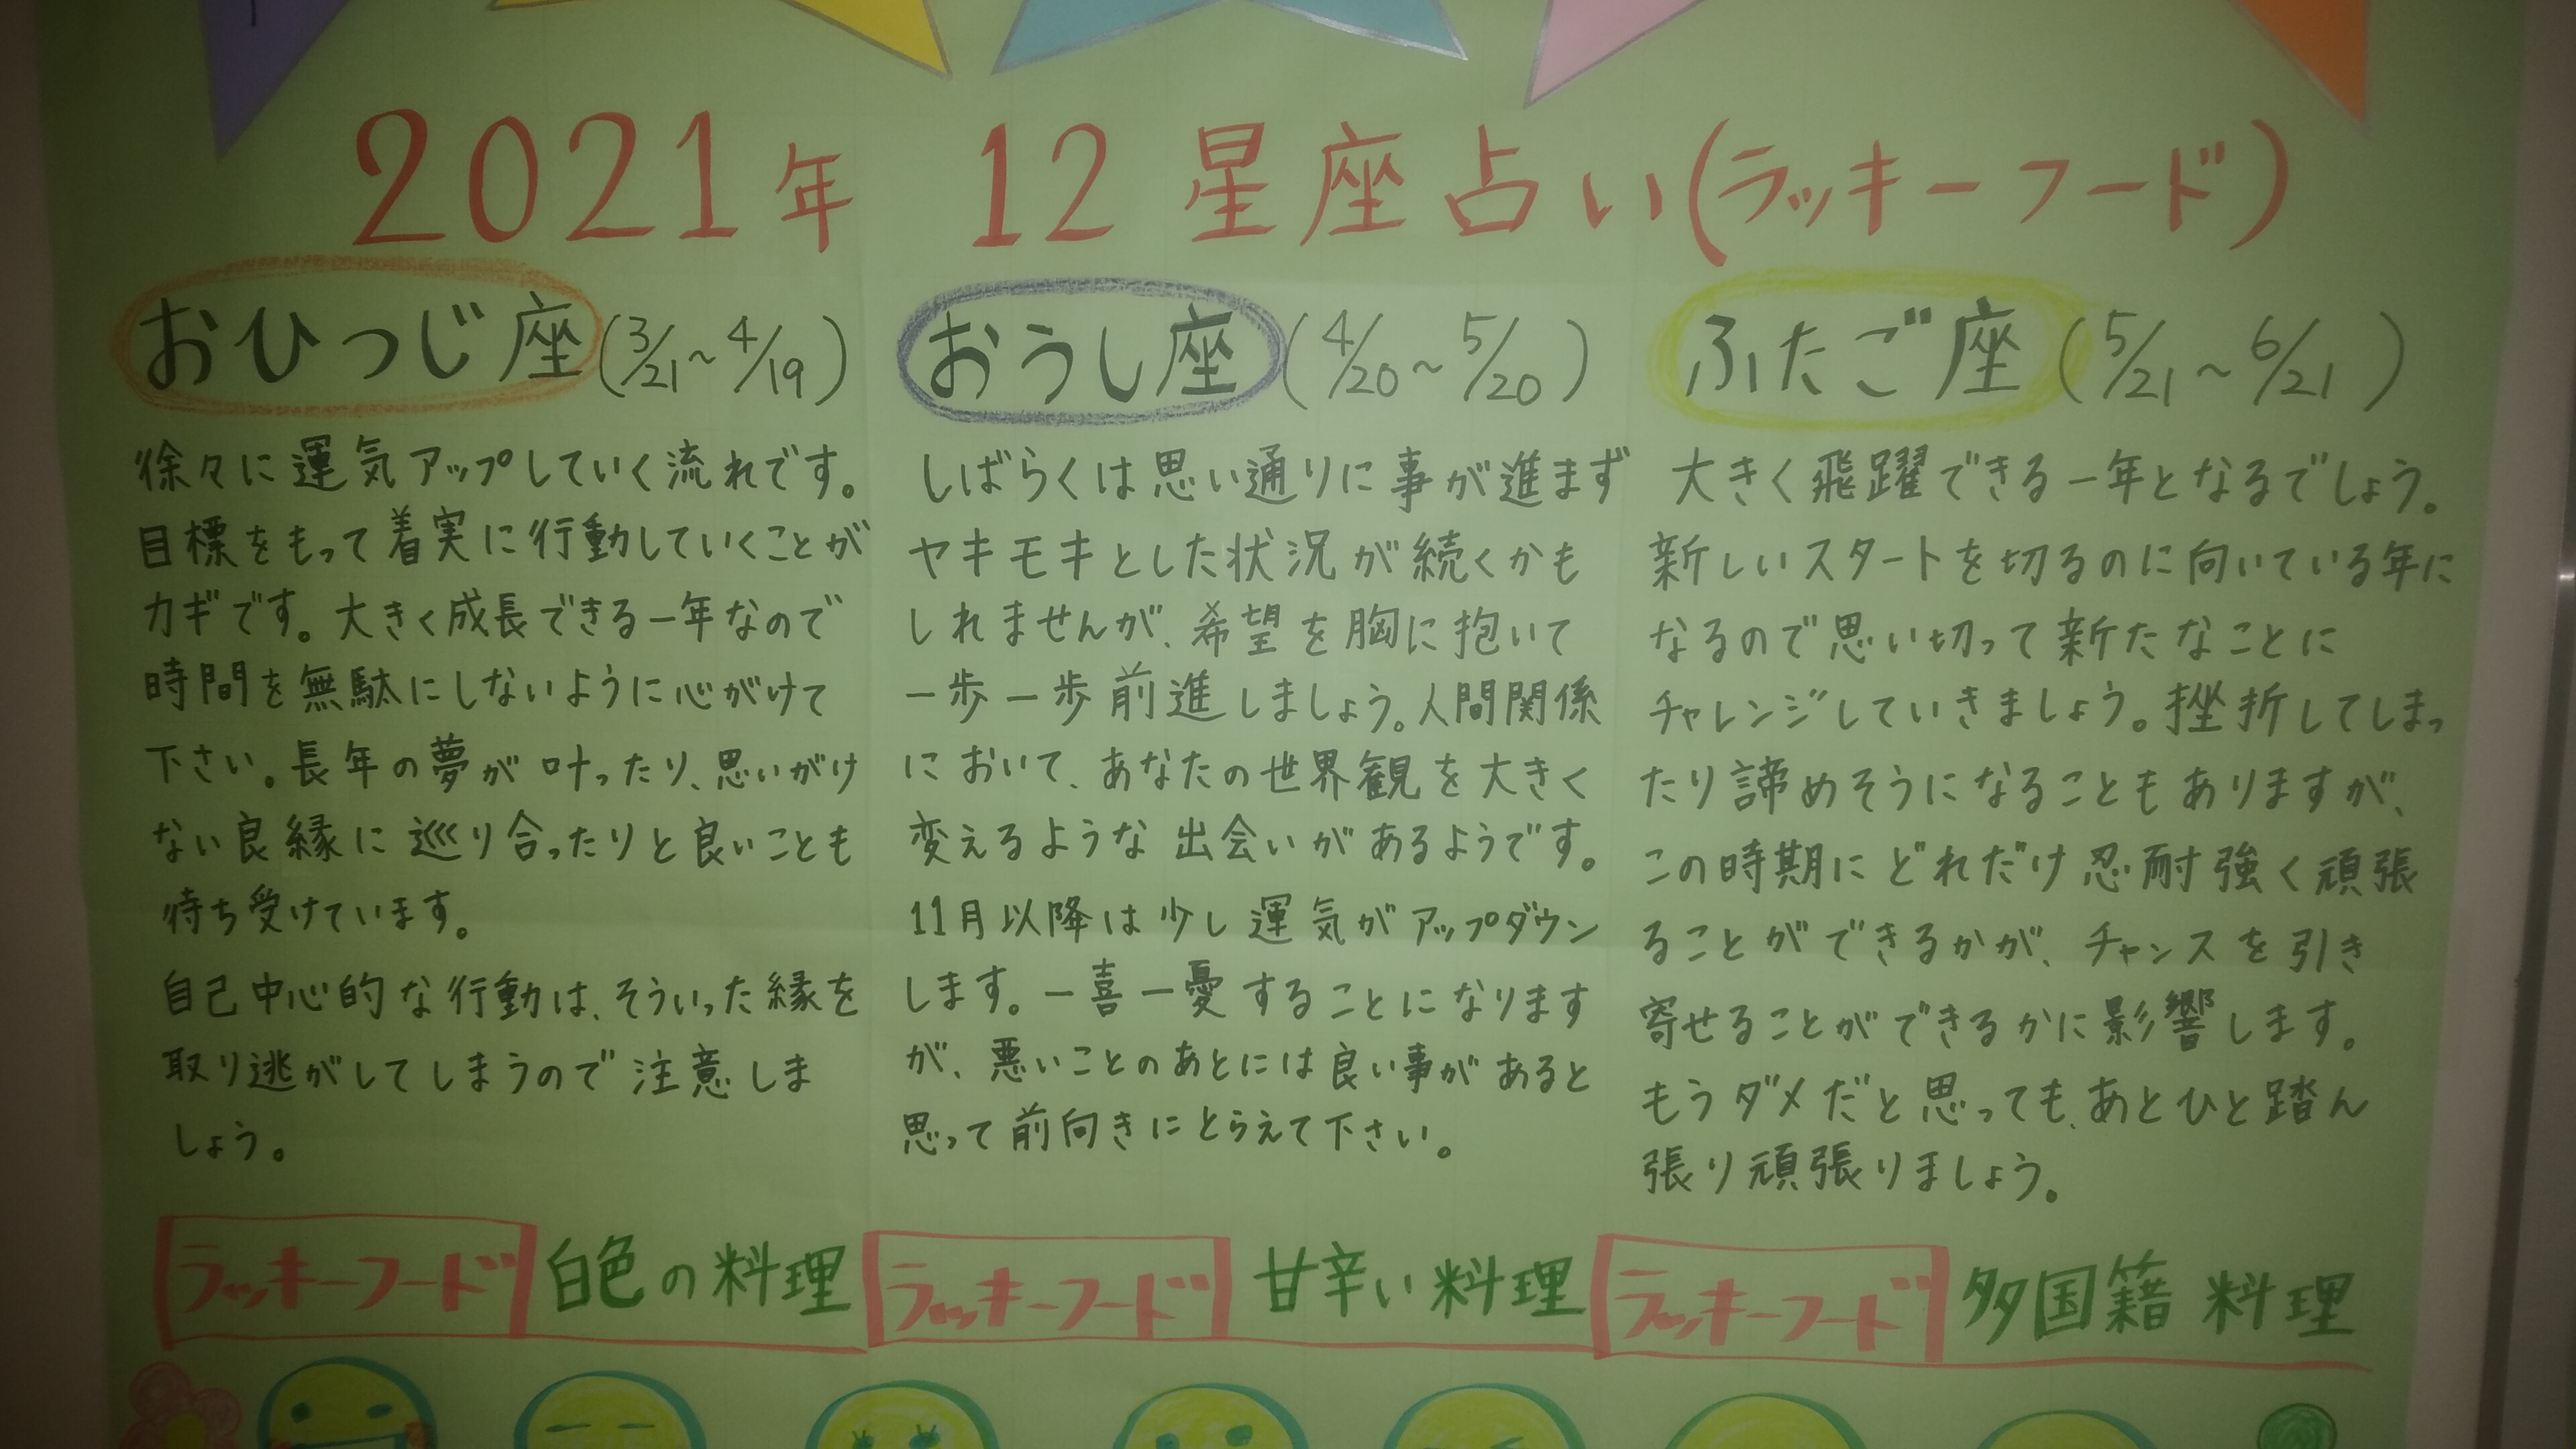 2021年 12星座占い(ラッキーフード)
おひつじ座(3/21~4/19)
徐々に運気アップしていく流れです。
目標をもって着実に行動していくことが
カギです。大きく成長できる一年なので
時間を無駄にしないように心がけて
下さい。長年の夢が叶ったり、思いがけ
ない良縁に巡り合ったりと良いことも
待ち受けています。
自己中心的な行動は、そういった縁を
取り逃がしてしまうので注意しま
しょう。
ラッキーフード 白色の料理
おうし座(4/20~5/20)
しばらくは思い通りに事が進まず
ヤキモキとした状況が続くかも
しれませんが、希望を胸に抱いて
一歩一歩前進しましょう。人間関係
において、あなたの世界観を大きく
変えるような出会いがあるようです。
11月以降は少し運気がアップダウン
します。一喜一憂することになります
が、悪いことのあとには良い事があると
思って前向きにとらえて下さい。
ラッキーフード 甘辛い料理
ふたご座(5/21~6/21)
大きく飛躍できる一年となるでしょう。
新しいスタートを切るのに向いている年に
なるので思い切って新たなことに
チャレンジしていきましょう。挫折してしまっ
たり諦めそうになることもありますが、
この時期にどれだけ忍耐強く頑張
ることができるかが、チャンスを引き
寄せることができるかに影響します。
もうダメだと思っても、あとひと踏ん
張り頑張りましょう。
ラッキーフード 多国籍料理